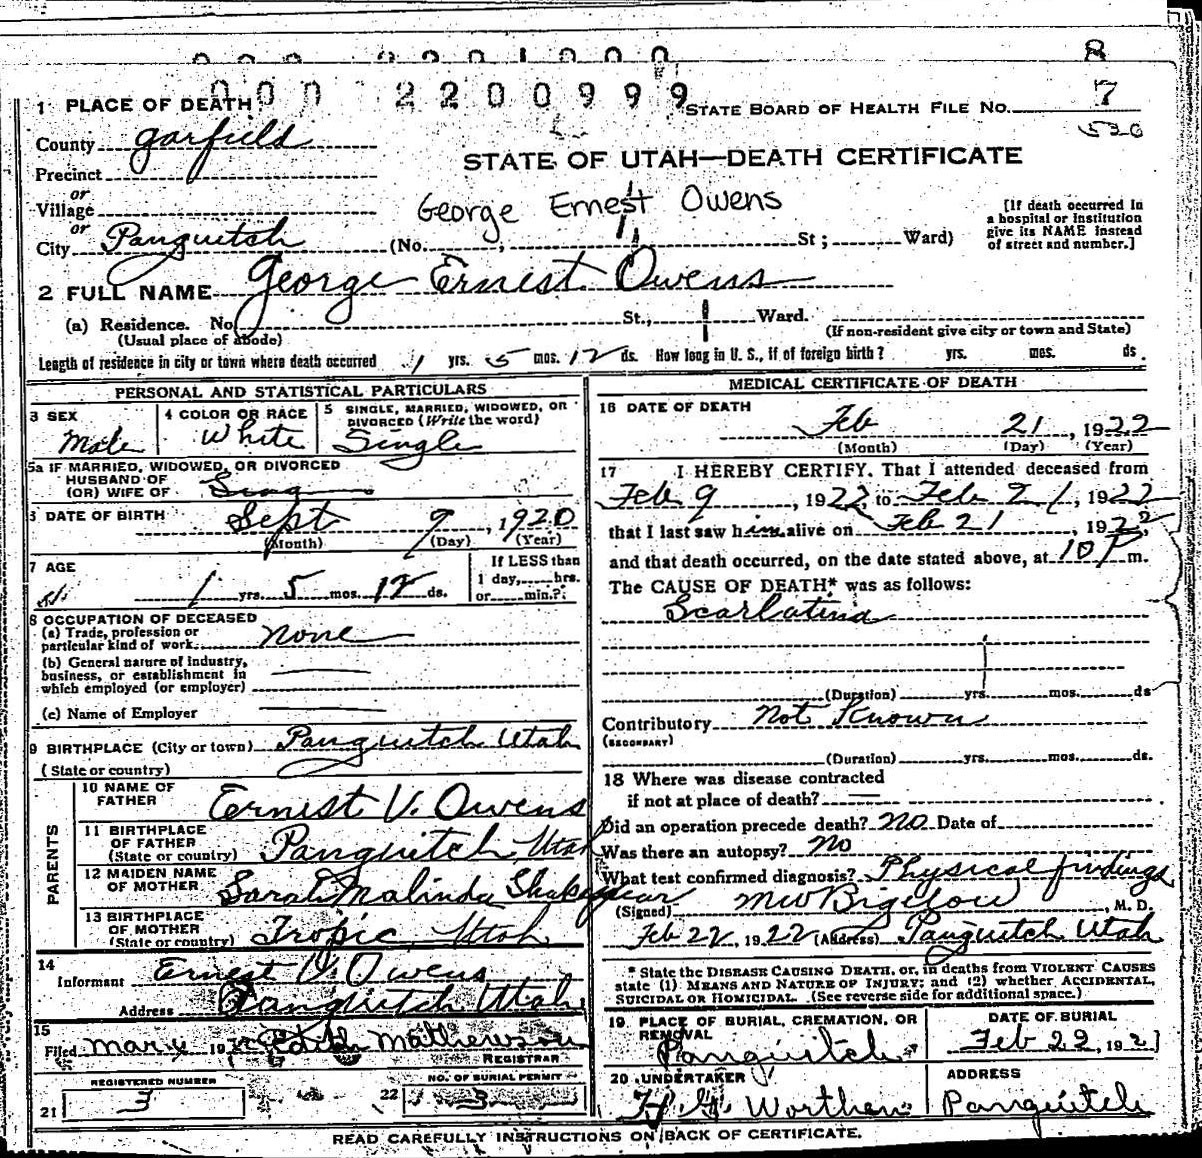 000 2201000
8
000 2200999
1 PLACE OF DEATH
STATE BOARD OF HEALTH FILE NO. 7
530
County Garfield
STATE OF UTAH—DEATH CERTIFICATE
Precinct
or
Village
George Ernest Owens
[If death occurred in a hospital or institution give its NAME instead of street and number.]
or
City Panguitch (No. , St ; Ward)
2 FULL NAME George Ernest Owens
(a) Residence. No. St., Ward.
(Usual place of abode) (If non-resident give city or town and State)
Length of residence in city or town where death occurred 1 yrs. 5 mos. 12 ds. How long in U. S., if of foreign birth? yrs. mos. ds.
PERSONAL AND STATISTICAL PARTICULARS
3 SEX Male
4 COLOR OR RACE White
5 SINGLE, MARRIED, WIDOWED, OR DIVORCED (Write the word) Single
5a IF MARRIED, WIDOWED, OR DIVORCED
HUSBAND OF
(OR) WIFE OF
6 DATE OF BIRTH Sept 9, 1920
(Month) (Day) (Year)
7 AGE
1 yrs. 5 mos. 12 ds.
If LESS than
1 day, hrs.
or min.?
8 OCCUPATION OF DECEASED
(a) Trade, profession or
particular kind of work none
(b) General nature of industry,
business, or establishment in
which employed (or employer)
(c) Name of Employer
9 BIRTHPLACE (City or town) Panguitch Utah
(State or country)
PARENTS
10 NAME OF FATHER Ernest V. Owens
11 BIRTHPLACE OF FATHER (State or country) Panguitch Utah
12 MAIDEN NAME OF MOTHER Sarah Malinda Shakespear
13 BIRTHPLACE OF MOTHER (State or country) Tropic, Utah
14
Informant Ernest V. Owens
Address Panguitch Utah
15
Filed Mar 4 19 Edith Mathewson
REGISTRAR
REGISTERED NUMBER
NO. OF BURIAL PERMIT
21 3
22 3
MEDICAL CERTIFICATE OF DEATH
16 DATE OF DEATH
Feb 21, 1922
(Month) (Day) (Year)
17 I HEREBY CERTIFY, That I attended deceased from
Feb 9, 1922, to Feb 21, 1922
that I last saw him alive on Feb 21, 1922,
and that death occurred, on the date stated above, at 10 P m.
The CAUSE OF DEATH* was as follows:
Scarlatina
(Duration) yrs. mos. ds
Contributory Not Known
(SECONDARY)
(Duration) yrs. mos. ds.
18 Where was disease contracted
if not at place of death?
Did an operation precede death? No Date of
Was there an autopsy? No
What test confirmed diagnosis? Physical findings
(Signed) MW Bigelow, M. D.
Feb 22, 1922 (Address) Panguitch Utah
* State the DISEASE CAUSING DEATH, or, in deaths from VIOLENT CAUSES
state (1) MEANS AND NATURE OF INJURY; and (2) whether ACCIDENTAL,
SUICIDAL OR HOMICIDAL. (See reverse side for additional space.)
19 PLACE OF BURIAL, CREMATION, OR REMOVAL
Panguitch
DATE OF BURIAL
Feb 22, 192
20 UNDERTAKER
Worthen
ADDRESS
Panguitch
READ CAREFULLY INSTRUCTIONS ON BACK OF CERTIFICATE.